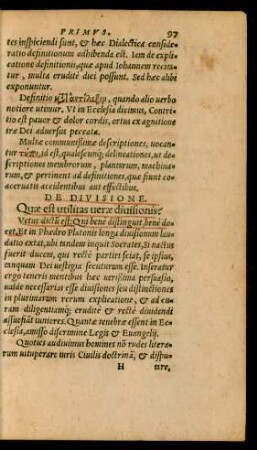 PRIMVS. 97
tes inspiciendi sunt, & hæc Dialectica conside
ratio definitionum adhibenda est. Iam de ex-
plicatione definitionis, quæ apud Iohannem recita
tur, multa erudite dici possunt. Sed hæc alibi
exponuntur.
Definitio κατ' ἀντίλεξιν, quando alio uerbo
notiore utimur. Vt in Ecclesia dicimus, Contri-
tio est pauor & dolor cordis, ortus ex agnitione
iræ Dei aduersus peccata.
Multæ communissimæ descriptiones, uocan-
tur id est, qualescunque delineationes, ut de
scriptiones membrorum, plantarum, machina-
rum, & pertinent ad definitiones, quæ fiunt co-
aceruatis accidentibus aut effectibus.
DE DIVISIONE.
Quæ est utilitas ueræ diuisionis?
Vetus dictum est: Qui bene distinguit, bene do-
cet, Et in Phædro Platonis longa diuisionum lau-
datio extat, ubi tandem inquit Socrates, Si nactus
fuerit ducem, qui recte partiri sciat, se ipsius,
tanquam Dei uestigia secuturum esse. Inseratur
ergo teneris mentibus hæc uerissima persuasio,
ualde necessarias esse diuisiones seu distinctiones
in plurimarum rerum explicatione, & ad ea-
rum diligentiam, erudite & recte diuidendi
assuefiat iuniores. Quantæ tenebræ essent in Ec-
clesia, amisso discrimine Legis & Euangelij.
Quoties audiuimus homines non rudes litera-
rum uituperare ueris Ciuilis doctrinam, & dispu-
H tare,